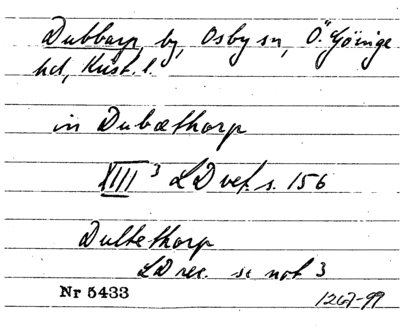 Dubbarp, by, Osby sn, Ö. Göinge
hd, Krist. l.
in Dubæthorp
XIII 3 LD vet. s. 156
Dultethorp
LD rec. s. not 3
Nr 5433
1267-99